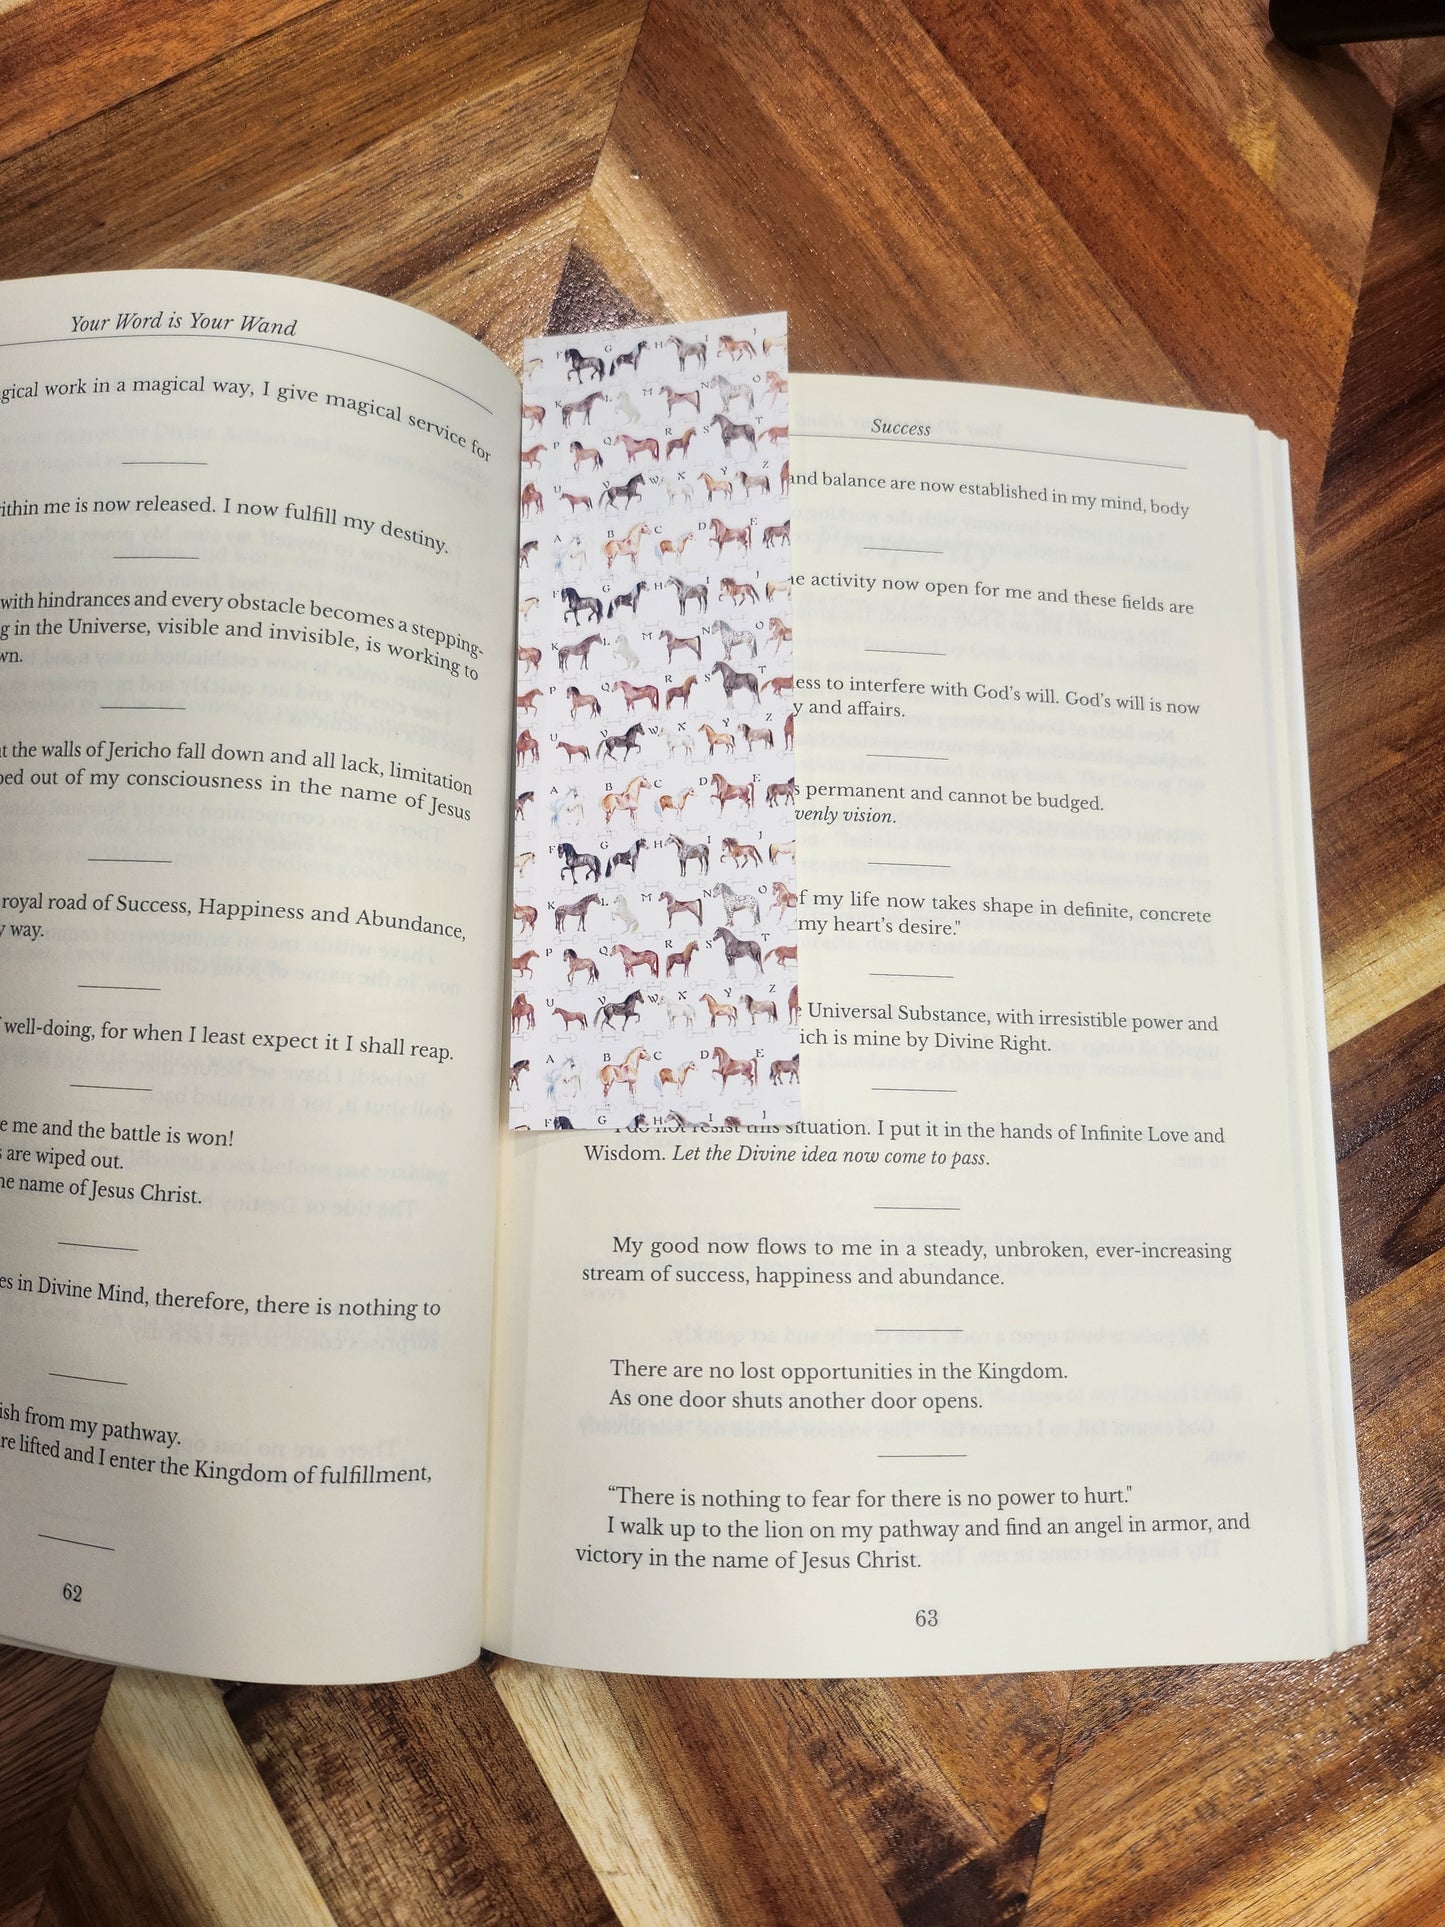 Your Word is Your Wand
gical work in a magical way, I give magical service for
ithin me is now released. I now fulfill my destiny.
with hindrances and every obstacle becomes a stepping-
g in the Universe, visible and invisible, is working to
wn.
t the walls of Jericho fall down and all lack, limitation
ped out of my consciousness in the name of Jesus
royal road of Success, Happiness and Abundance,
y way.
well-doing, for when I least expect it I shall reap.
e me and the battle is won!
s are wiped out.
he name of Jesus Christ.
es in Divine Mind, therefore, there is nothing to
ish from my pathway.
re lifted and I enter the Kingdom of fulfillment,
62
F G H I J
K L M N O
P Q R S T
U V W X Y Z
A B C D E
F G H I J
K L M N O
P Q R S T
U V W X Y Z
A B C D E
F G H I J
K L M N O
P Q R S T
U V W X Y Z
A B C D E
F G H I J
Success
and balance are now established in my mind, body
e activity now open for me and these fields are
ess to interfere with God's will. God's will is now
y and affairs.
s permanent and cannot be budged.
venly vision.
f my life now takes shape in definite, concrete
my heart's desire."
Universal Substance, with irresistible power and
ich is mine by Divine Right.
I do not resist this situation. I put it in the hands of Infinite Love and
Wisdom. Let the Divine idea now come to pass.
My good now flows to me in a steady, unbroken, ever-increasing
stream of success, happiness and abundance.
There are no lost opportunities in the Kingdom.
As one door shuts another door opens.
“There is nothing to fear for there is no power to hurt."
I walk up to the lion on my pathway and find an angel in armor, and
victory in the name of Jesus Christ.
63